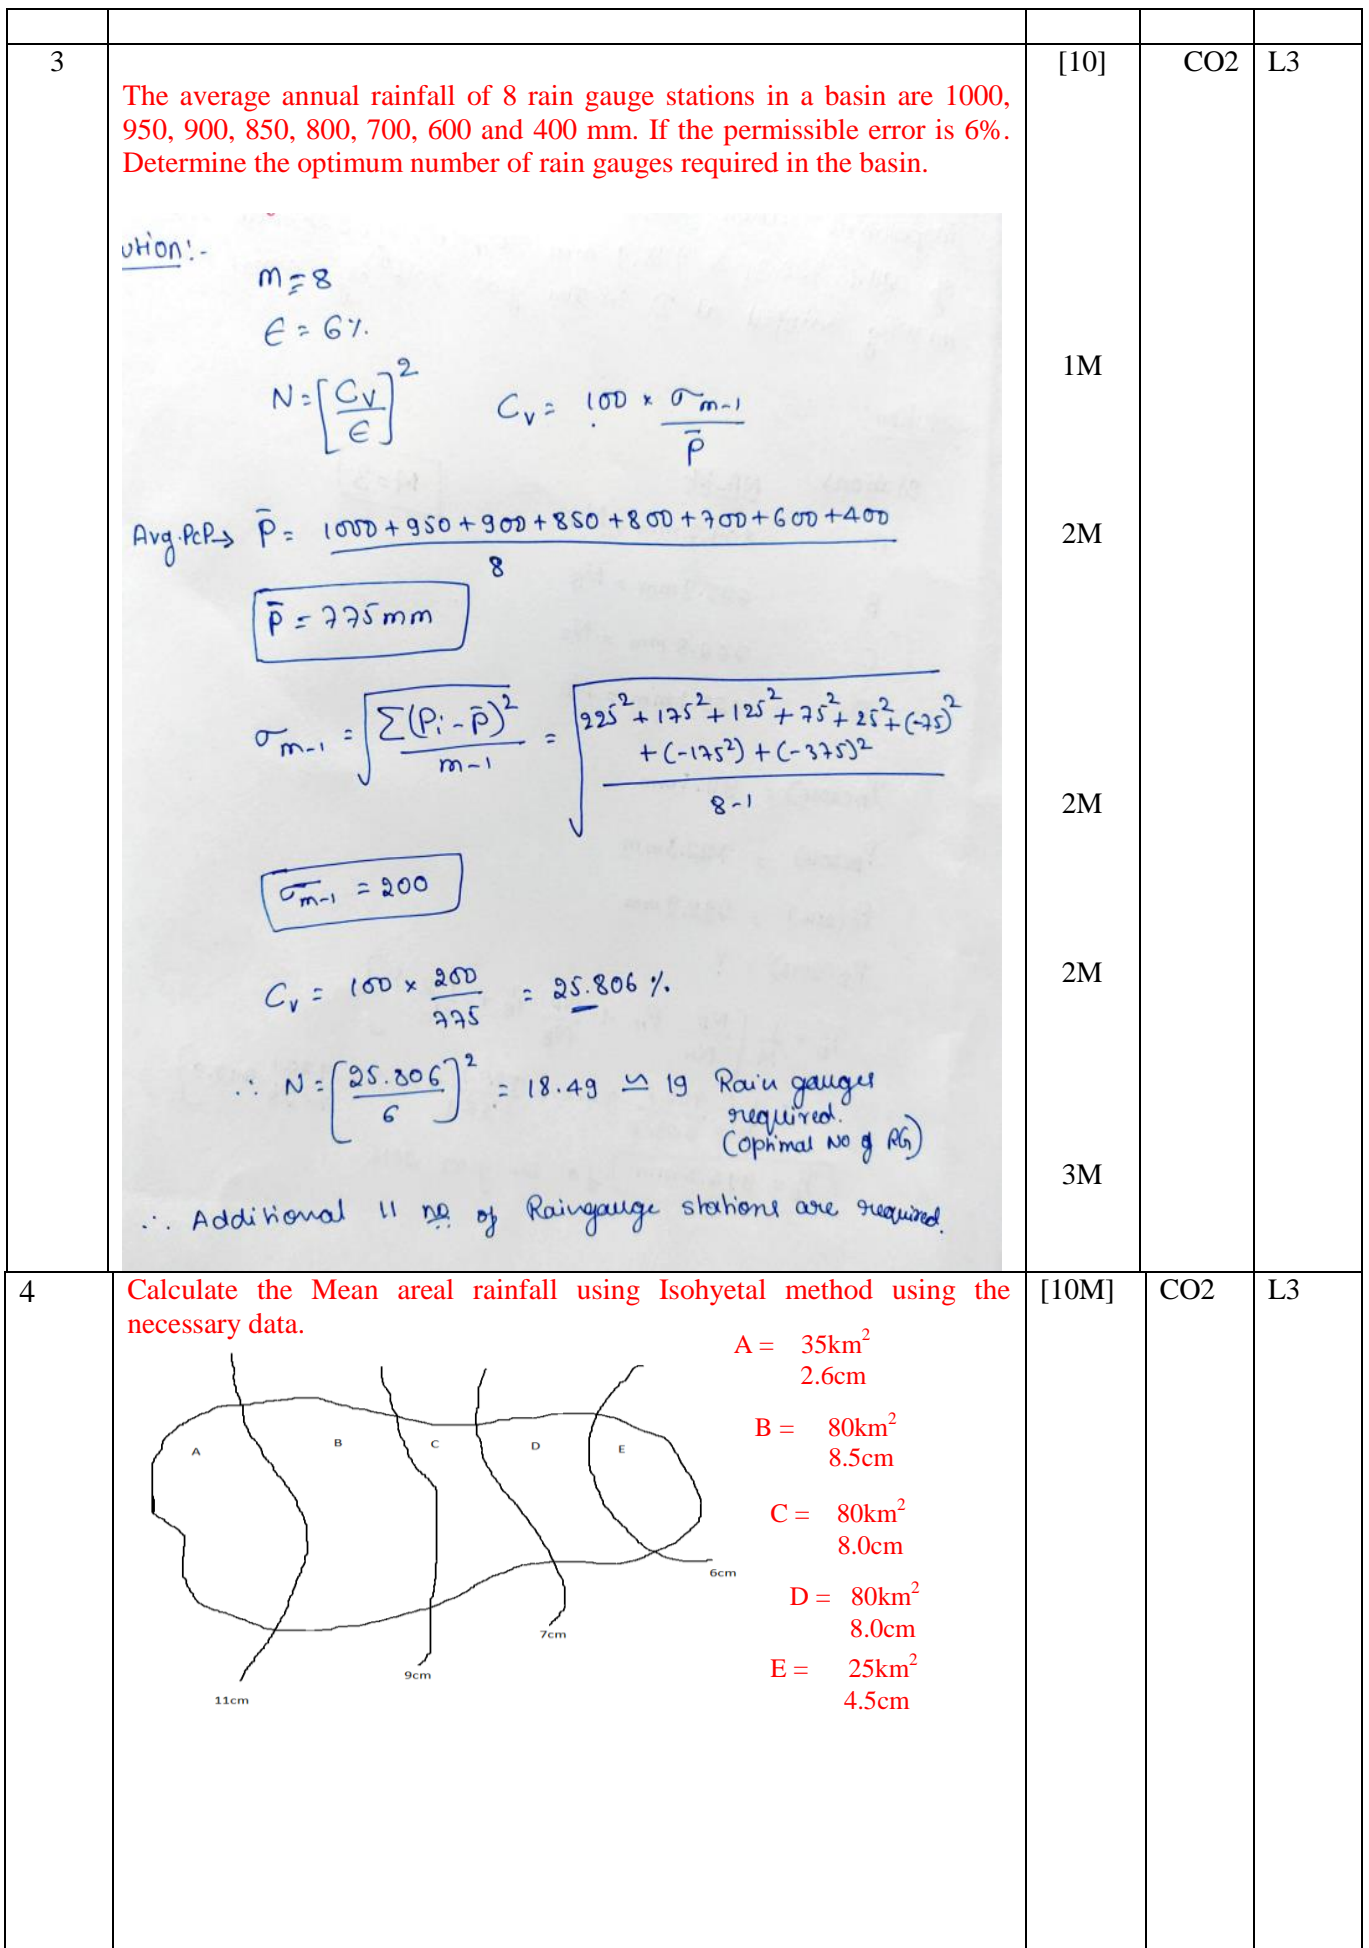 3 [10] CO2 L3
The average annual rainfall of 8 rain gauge stations in a basin are 1000,
950, 900, 850, 800, 700, 600 and 400 mm. If the permissible error is 6%.
Determine the optimum number of rain gauges required in the basin.
ution:-
m = 8
ϵ = 6%.
N = [Cv/ϵ]² Cv = 100 × σm-1/P̄
1M
Avg.PcP→ P̄ = 1000+950+900+850+800+700+600+400/8
2M
P̄ = 775mm
σm-1 = √(Σ(Pi-P̄)²/m-1) = √(225²+175²+125²+75²+25²+(-75)²
+(-175²)+(-375)²/8-1)
2M
σm-1 = 200
Cv = 100 × 200/775 = 25.806 %.
2M
∴ N = [25.806/6]² = 18.49 ≃ 19 Rain gauges
required.
(optimal No of RG)
3M
∴ Additional 11 no of Raingauge stations are required.
4 [10M] CO2 L3
Calculate the Mean areal rainfall using Isohyetal method using the
necessary data.
A = 35km²
2.6cm
B = 80km²
8.5cm
C = 80km²
8.0cm
D = 80km²
8.0cm
E = 25km²
4.5cm
A B C D E
6cm
7cm
9cm
11cm